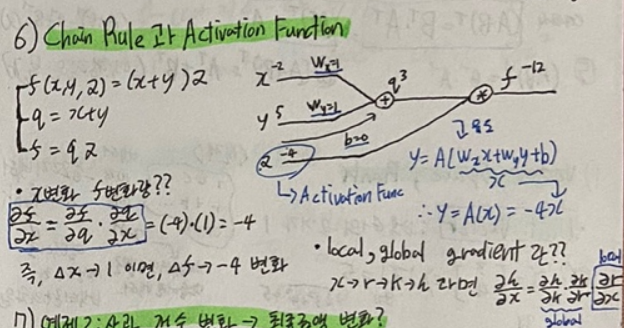 6) Chain Rule 과 Activation Function
f(x,y,z) = (x+y)z
q = x+y
f = qz
x -2 Wx=1
y 5 Wy=1
z -4 b=0
+ q 3 * f -12
↳ Activation Func
↳ 용도
y = A(Wxx+Wyy+b)
x
∴ y = A(x) = -4x
• x변화 f변화량??
∂f/∂x = ∂f/∂q · ∂q/∂x = (-4)·(1) = -4
즉, Δx → 1 이면, Δf → -4 변화
• local, global gradient 란??
x→r→k→h 라면 ∂h/∂x = ∂h/∂k · ∂k/∂r · ∂r/∂x
local
global
7) 예제2: 사과 개수 변화 → 최종금액 변화?